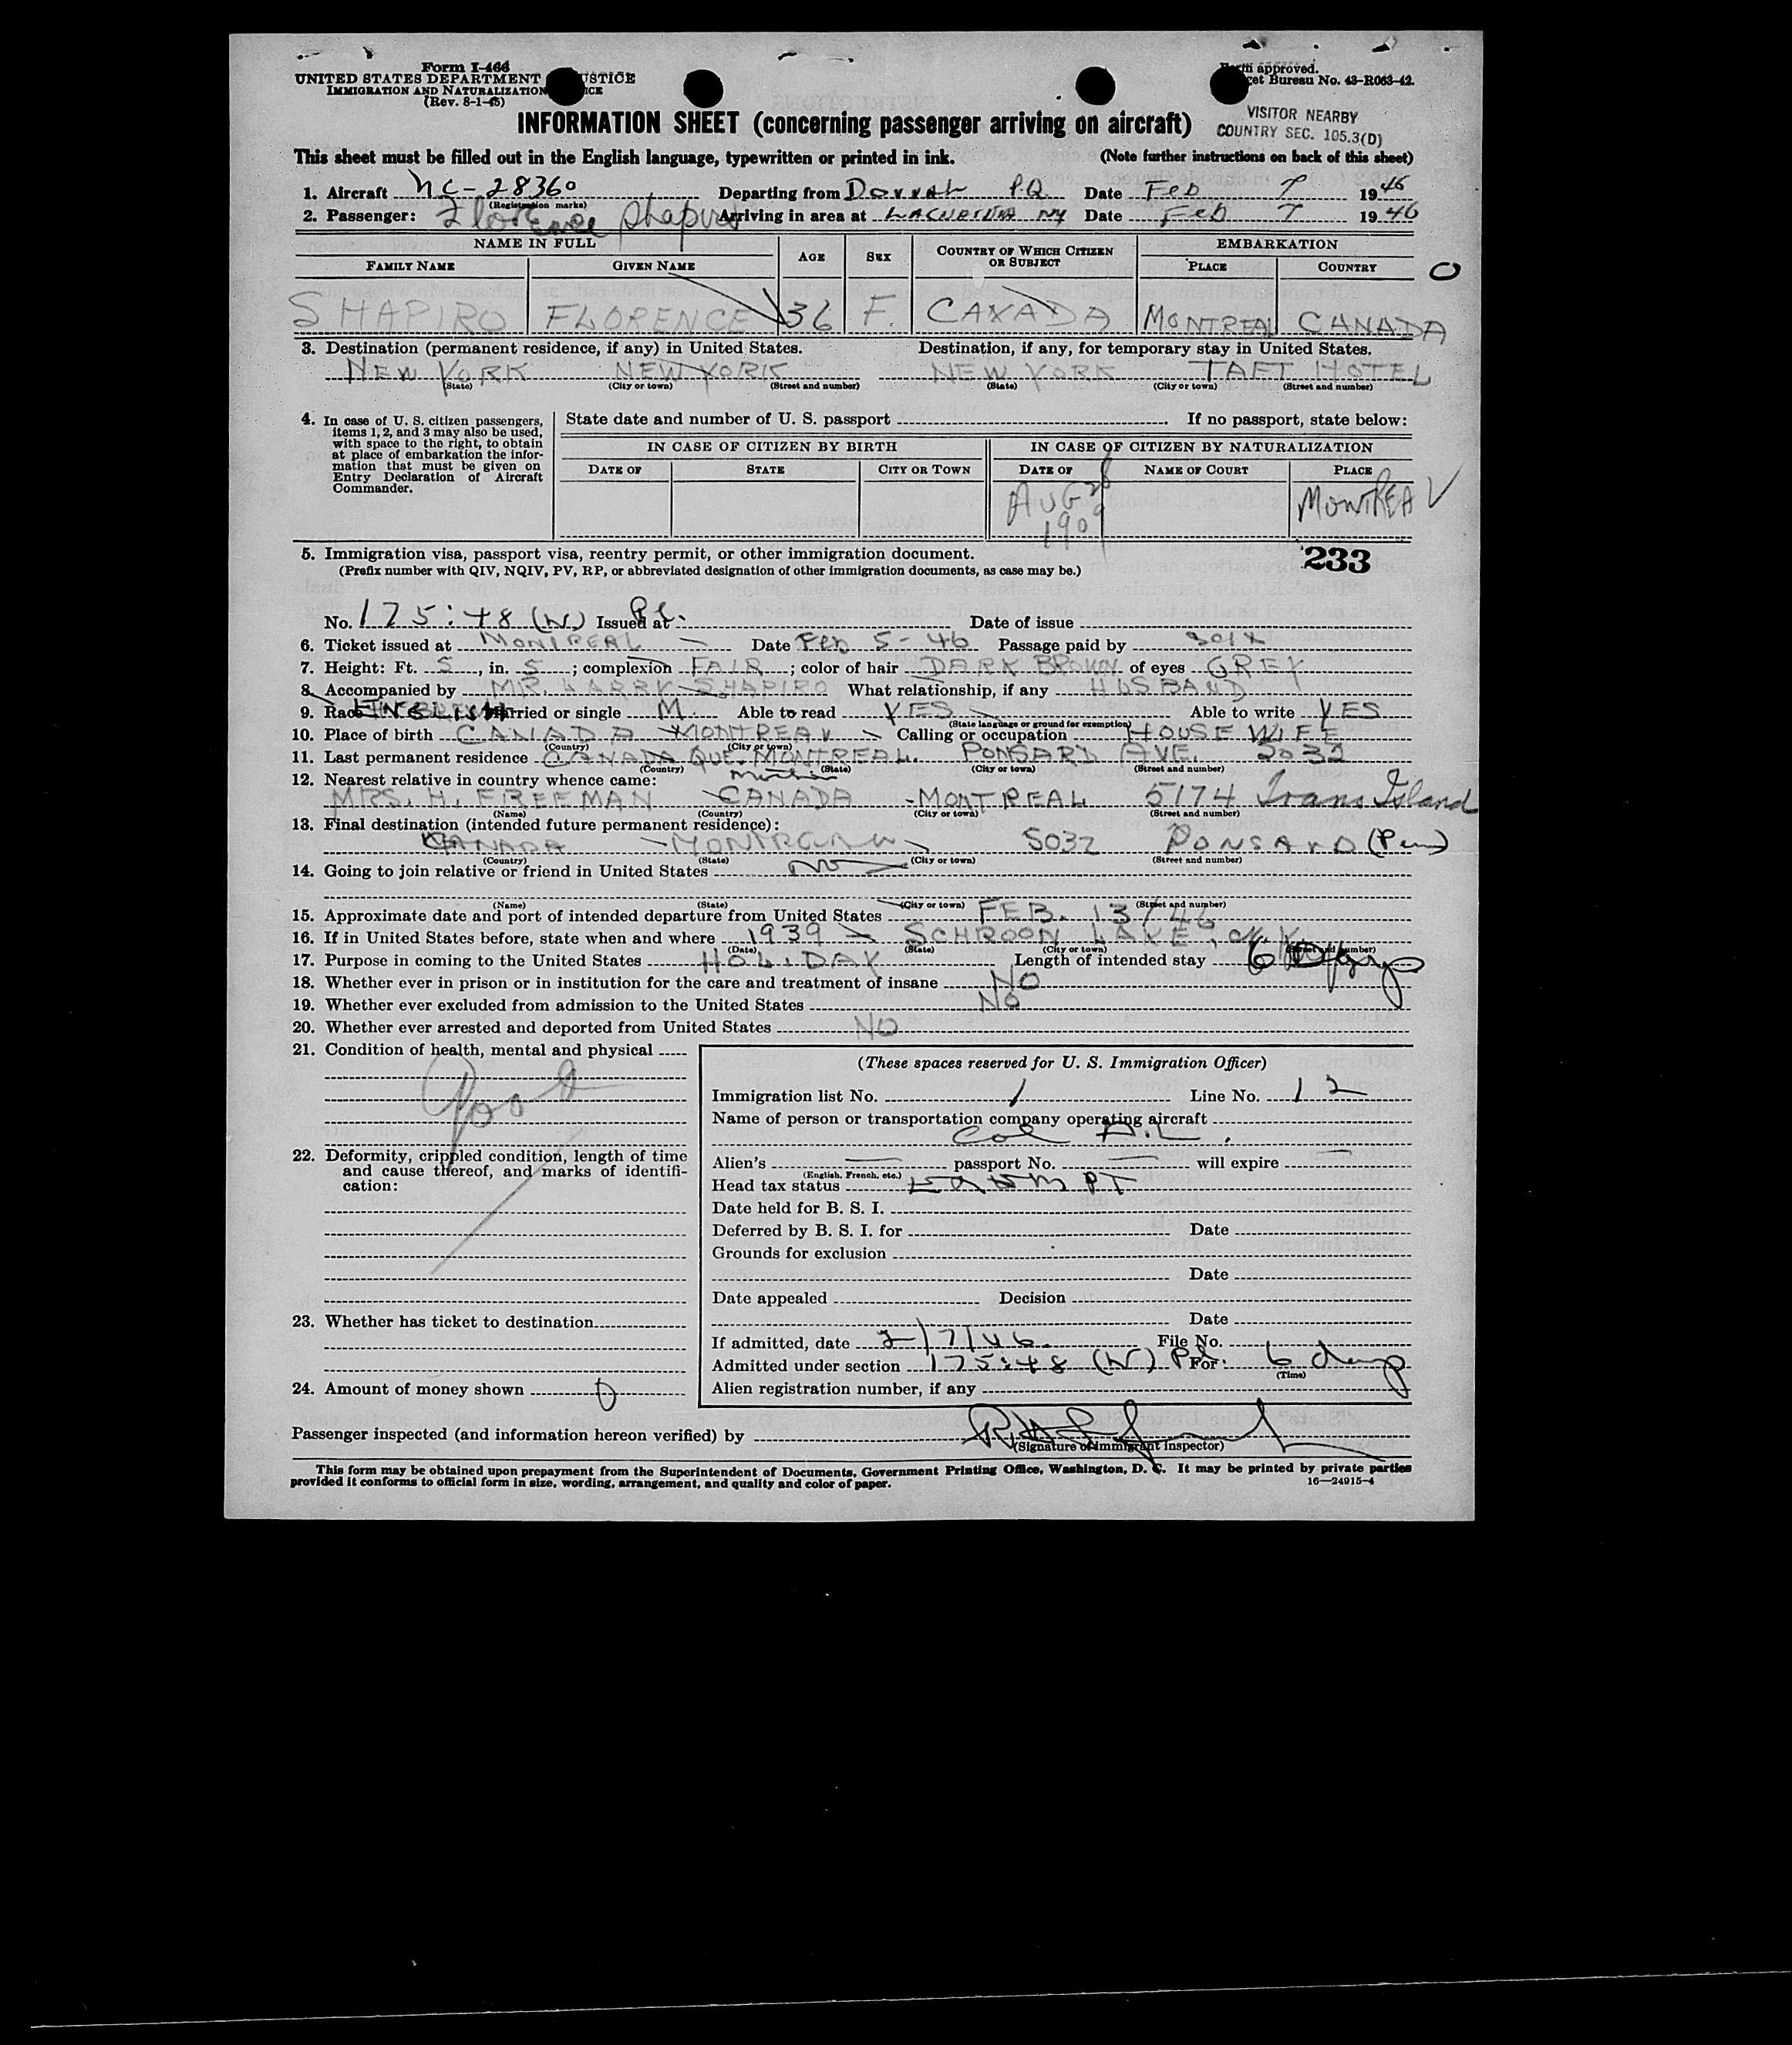 Form I-466
UNITED STATES DEPARTMENT USTICE
IMMIGRATION AND NATURALIZATION ICE
(Rev. 8-1-45)
approved.
get Bureau No. 43-R063-42.
VISITOR NEARBY
COUNTRY SEC. 105.3(D)
INFORMATION SHEET (concerning passenger arriving on aircraft)
This sheet must be filled out in the English language, typewritten or printed in ink. (Note further instructions on back of this sheet)
1. Aircraft NC-28360 Departing from Dorval P.Q. Date Feb 7 1946
(Registration marks)
2. Passenger: Florence Shapiro Arriving in area at Date Feb 7 1946
NAME IN FULL AGE SEX COUNTRY OF WHICH CITIZEN OR SUBJECT EMBARKATION
FAMILY NAME GIVEN NAME PLACE COUNTRY
SHAPIRO FLORENCE 36 F. CANADA MONTREAL CANADA
3. Destination (permanent residence, if any) in United States. Destination, if any, for temporary stay in United States.
NEW YORK NEW YORK NEW YORK TAFT HOTEL
(State) (City or town) (Street and number) (State) (City or town) (Street and number)
4. In case of U. S. citizen passengers, items 1, 2, and 3 may also be used, with space to the right, to obtain at place of embarkation the information that must be given on Entry Declaration of Aircraft Commander.
State date and number of U. S. passport If no passport, state below:
IN CASE OF CITIZEN BY BIRTH IN CASE OF CITIZEN BY NATURALIZATION
DATE OF STATE CITY OR TOWN DATE OF NAME OF COURT PLACE
AUG 28 1909 MONTREAL
5. Immigration visa, passport visa, reentry permit, or other immigration document. 233
(Prefix number with QIV, NQIV, PV, RP, or abbreviated designation of other immigration documents, as case may be.)
No. 175:48 (W) P.L. Issued at Date of issue
6. Ticket issued at MONTREAL Date Feb 5-46 Passage paid by
7. Height: Ft. 5, in. 5; complexion FAIR; color of hair DARK BROWN of eyes GREY
8. Accompanied by MR. LARRY SHAPIRO What relationship, if any HUSBAND
9. Race ENGLISH Married or single M. Able to read YES Able to write YES
(State language or ground for exemption)
10. Place of birth CANADA MONTREAL Calling or occupation HOUSE WIFE
(Country) (City or town)
11. Last permanent residence CANADA QUE. MONTREAL. PONSARD AVE. 5032
(Country) (State) (City or town) (Street and number)
12. Nearest relative in country whence came: mother
MRS. H. FREEMAN CANADA - MONTREAL 5174 Trans Island
(Name) (Country) (City or town) (Street and number)
13. Final destination (intended future permanent residence):
CANADA - MONTREAL 5032 PONSARD (Perm)
(Country) (State) (City or town) (Street and number)
14. Going to join relative or friend in United States No
(Name) (State) (City or town) (Street and number)
15. Approximate date and port of intended departure from United States FEB. 13/46
16. If in United States before, state when and where 1939 - SCHROON LAKE, N.Y.
(Date) (State) (City or town) (Street and number)
17. Purpose in coming to the United States HOLIDAY Length of intended stay 6 Days
18. Whether ever in prison or in institution for the care and treatment of insane NO
19. Whether ever excluded from admission to the United States NO
20. Whether ever arrested and deported from United States NO
21. Condition of health, mental and physical
Good
22. Deformity, crippled condition, length of time and cause thereof, and marks of identification:
23. Whether has ticket to destination
24. Amount of money shown 0
(These spaces reserved for U. S. Immigration Officer)
Immigration list No. 1 Line No. 12
Name of person or transportation company operating aircraft
Col A.L.
Alien's passport No. will expire
(English, French, etc.)
Head tax status EXEMPT
Date held for B. S. I.
Deferred by B. S. I. for Date
Grounds for exclusion
Date
Date appealed Decision
Date
If admitted, date 2/7/46. File No.
Admitted under section 175:48 (W) P.L. For: 6 days
(Time)
Alien registration number, if any
Passenger inspected (and information hereon verified) by
(Signature of immigrant inspector)
This form may be obtained upon prepayment from the Superintendent of Documents, Government Printing Office, Washington, D. C. It may be printed by private parties
provided it conforms to official form in size, wording, arrangement, and quality and color of paper. 16—24915-4